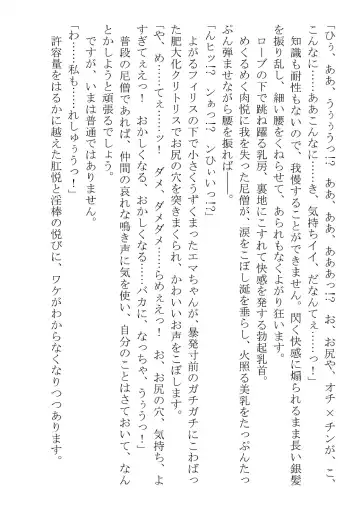 「ひぅ、ああ、うぅうっ⁉　ああ、あああぁっ⁉　お、お尻や、オチ×チンが、こ、
こんなに……ああこんなに……き、気持ちイイ、だなんてぇ……っ！」
　知識も耐性もないので、我慢することができません。閃く快感に煽られるまま長い銀髪
を振り乱し、細い腰をくねらせて、あられもなくよがり狂います。
　ローブの下で跳ね躍る乳房。裏地にこすれて快感を発する勃起乳首。
　めくるめく肉悦に我を失った尼僧が、涙をこぼし涎を垂らし、火照る美乳をたっぷんたっ
ぷん弾ませながら腰を振れば――。
「んヒッ⁉　ンぁっ⁉　ンひぃいっ⁉」
　よがるフィリスの下で小さくうずくまったエマちゃんが、暴発寸前のガチガチにこわばっ
た肥大化クリトリスでお尻の穴を突きまくられ、かわいいお声をこぼします。
「や、め……てぇ……ッ！　ダメ、ダメダメ……らめぇえっ！　お、お尻の穴、気持ち、よ
すぎてぇえっ！　おかしくなる、おかしくなる……バカに、なっちゃ、うぅうっ！」
　普段の尼僧であれば、仲間の哀れな鳴き声に気を使い、自分のことはさておいて、なん
とかしようと頑張るでしょう。
　ですが、いまは普通ではありません。
「わ……私も……れしゅぅうっ！」
　許容量をはるかに越えた肛悦と淫棒の悦びに、ワケがわからなくなりつつあります。